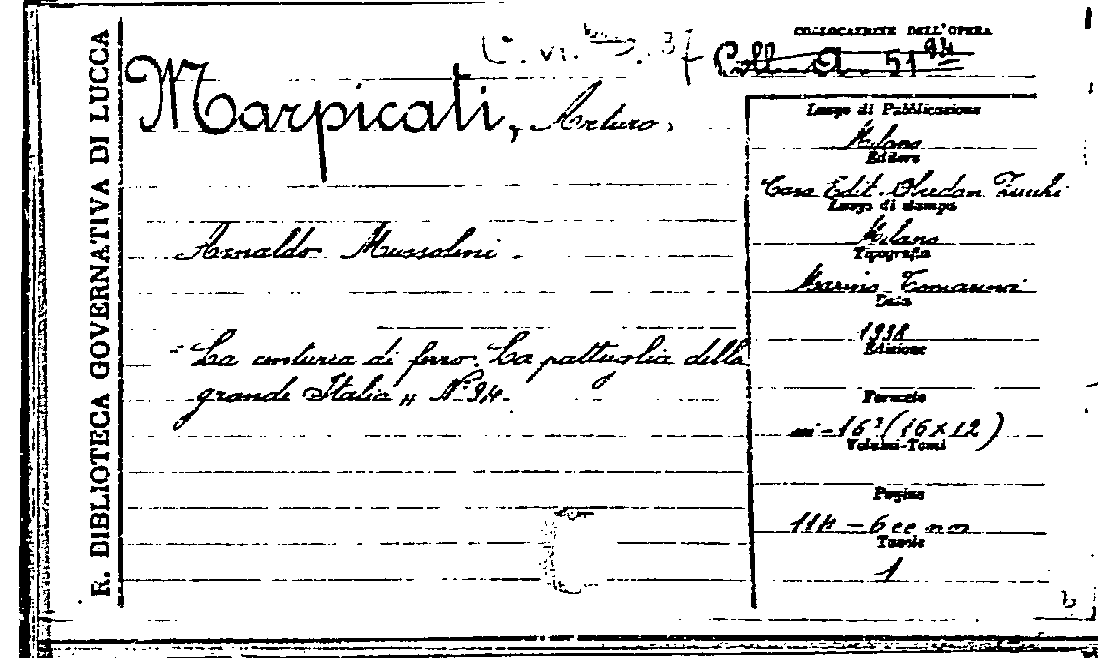 R. BIBLIOTECA GOVERNATIVA DI LUCCA
COLLOCAZIONE DELL'OPERA
Coll. A. 51 94
Marpicati, Arturo,
Arnaldo Mussolini.
"La centuria di ferro. La pattuglia della
grande Italia" N° 94.
Luogo di Pubblicazione
Milano
Editore
Casa Edit. Oberdan Zucchi
Luogo di stampa
Milano
Tipografia
Data
1938
Edizione
Formato
in-16° (16x12)
Volumi-Tomi
Pagine
114 - 6 cc nn
Tavole
1